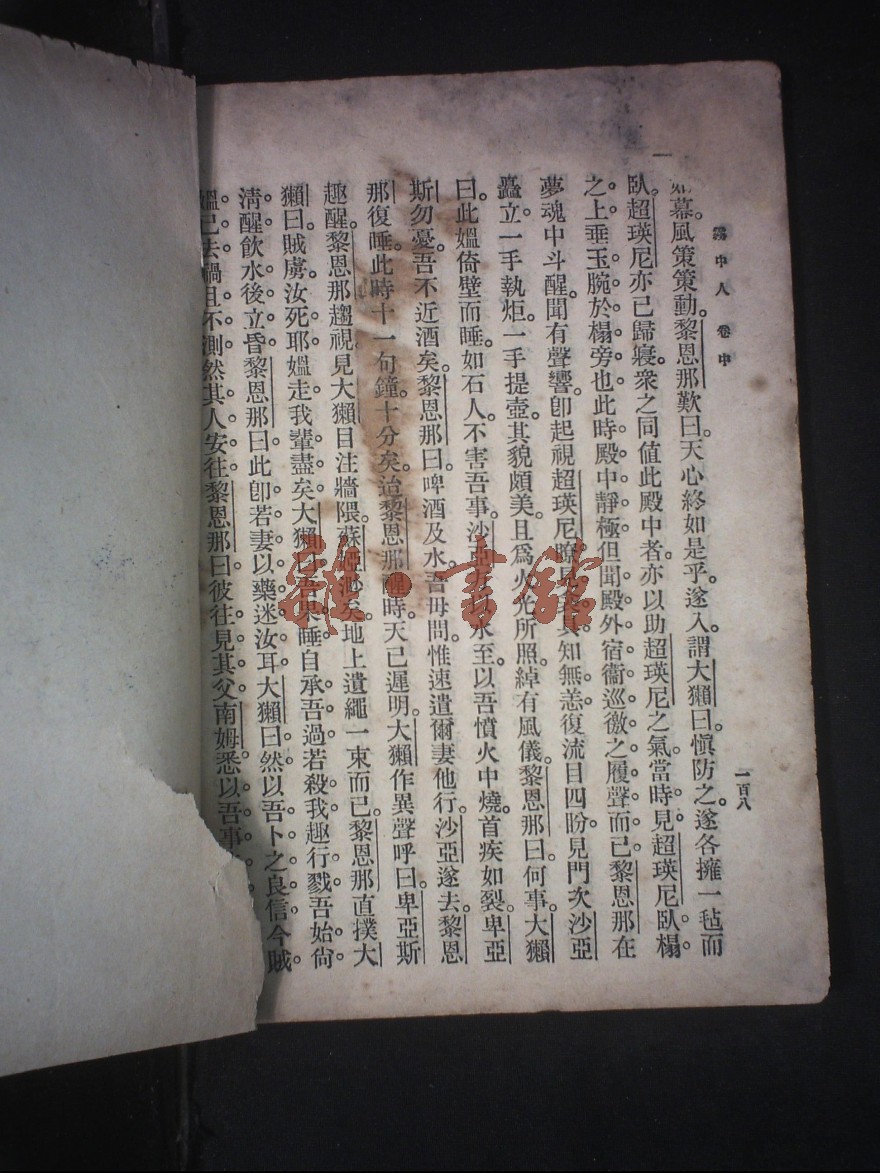 霧中人 卷中
一百八
幕。風策策動。黎恩那歎曰。天心終如是乎。遂入。謂大獺曰。愼防之。遂各擁一毡而
臥。超瑛尼亦已歸寢。衆之同值此殿中者。亦以助超瑛尼之氣。當時見超瑛尼臥榻
之上。垂玉腕於榻旁也。此時殿中靜極。但聞殿外宿衞巡徼之履聲而已。黎恩那在
夢魂中斗醒。聞有聲響。卽起視超瑛尼。知無恙。復流目四盼。見門次沙亞
矗立。一手執炬。一手提壺。其貌頗美。且爲火光所照。綽有風儀。黎恩那曰。何事。大獺
曰。此媼倚壁而睡。如石人。不害吾事。沙亞水至。以吾憤火中燒。首疾如裂。卑亞
斯勿憂。吾不近酒矣。黎恩那曰。啤酒及水。吾毋問。惟速遣爾妻他行。沙亞遂去。黎恩
那復睡。此時十一句鐘十分矣。迨黎恩那醒時。天已遲明。大獺作異聲呼曰。卑亞斯
趣醒。黎恩那趨視。見大獺目注牆隈。蘇矣。地上遺繩一束而已。黎恩那直撲大
獺曰。賊虜汝死耶。媼走。我輩盡矣。大獺曰。吾果睡。自承吾過。若殺我。趣行戮。吾始尙
淸醒。飲水後立昏。黎恩那曰。此卽若妻以藥迷汝耳。大獺曰。然。以吾卜之良信。今賊
媼已去。禍且不測。然其人安往。黎恩那曰。彼往見其父南姆。悉以吾事
雜·書館